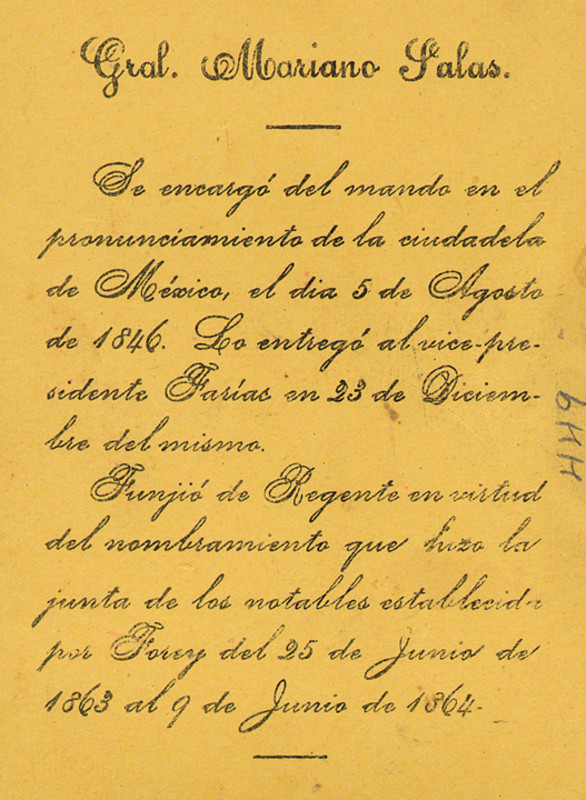 Gral. Mariano Salas.
Se encargó del mando en el
pronunciamiento de la ciudadela
de México, el dia 5 de Agosto
de 1846. Lo entregó al vice-pre-
sidente Farías en 23 de Diciem-
bre del mismo.
Funjió de Regente en virtud
del nombramiento que hizo la
junta de los notables establecida
por Forey del 25 de Junio de
1863 al 9 de Junio de 1864.